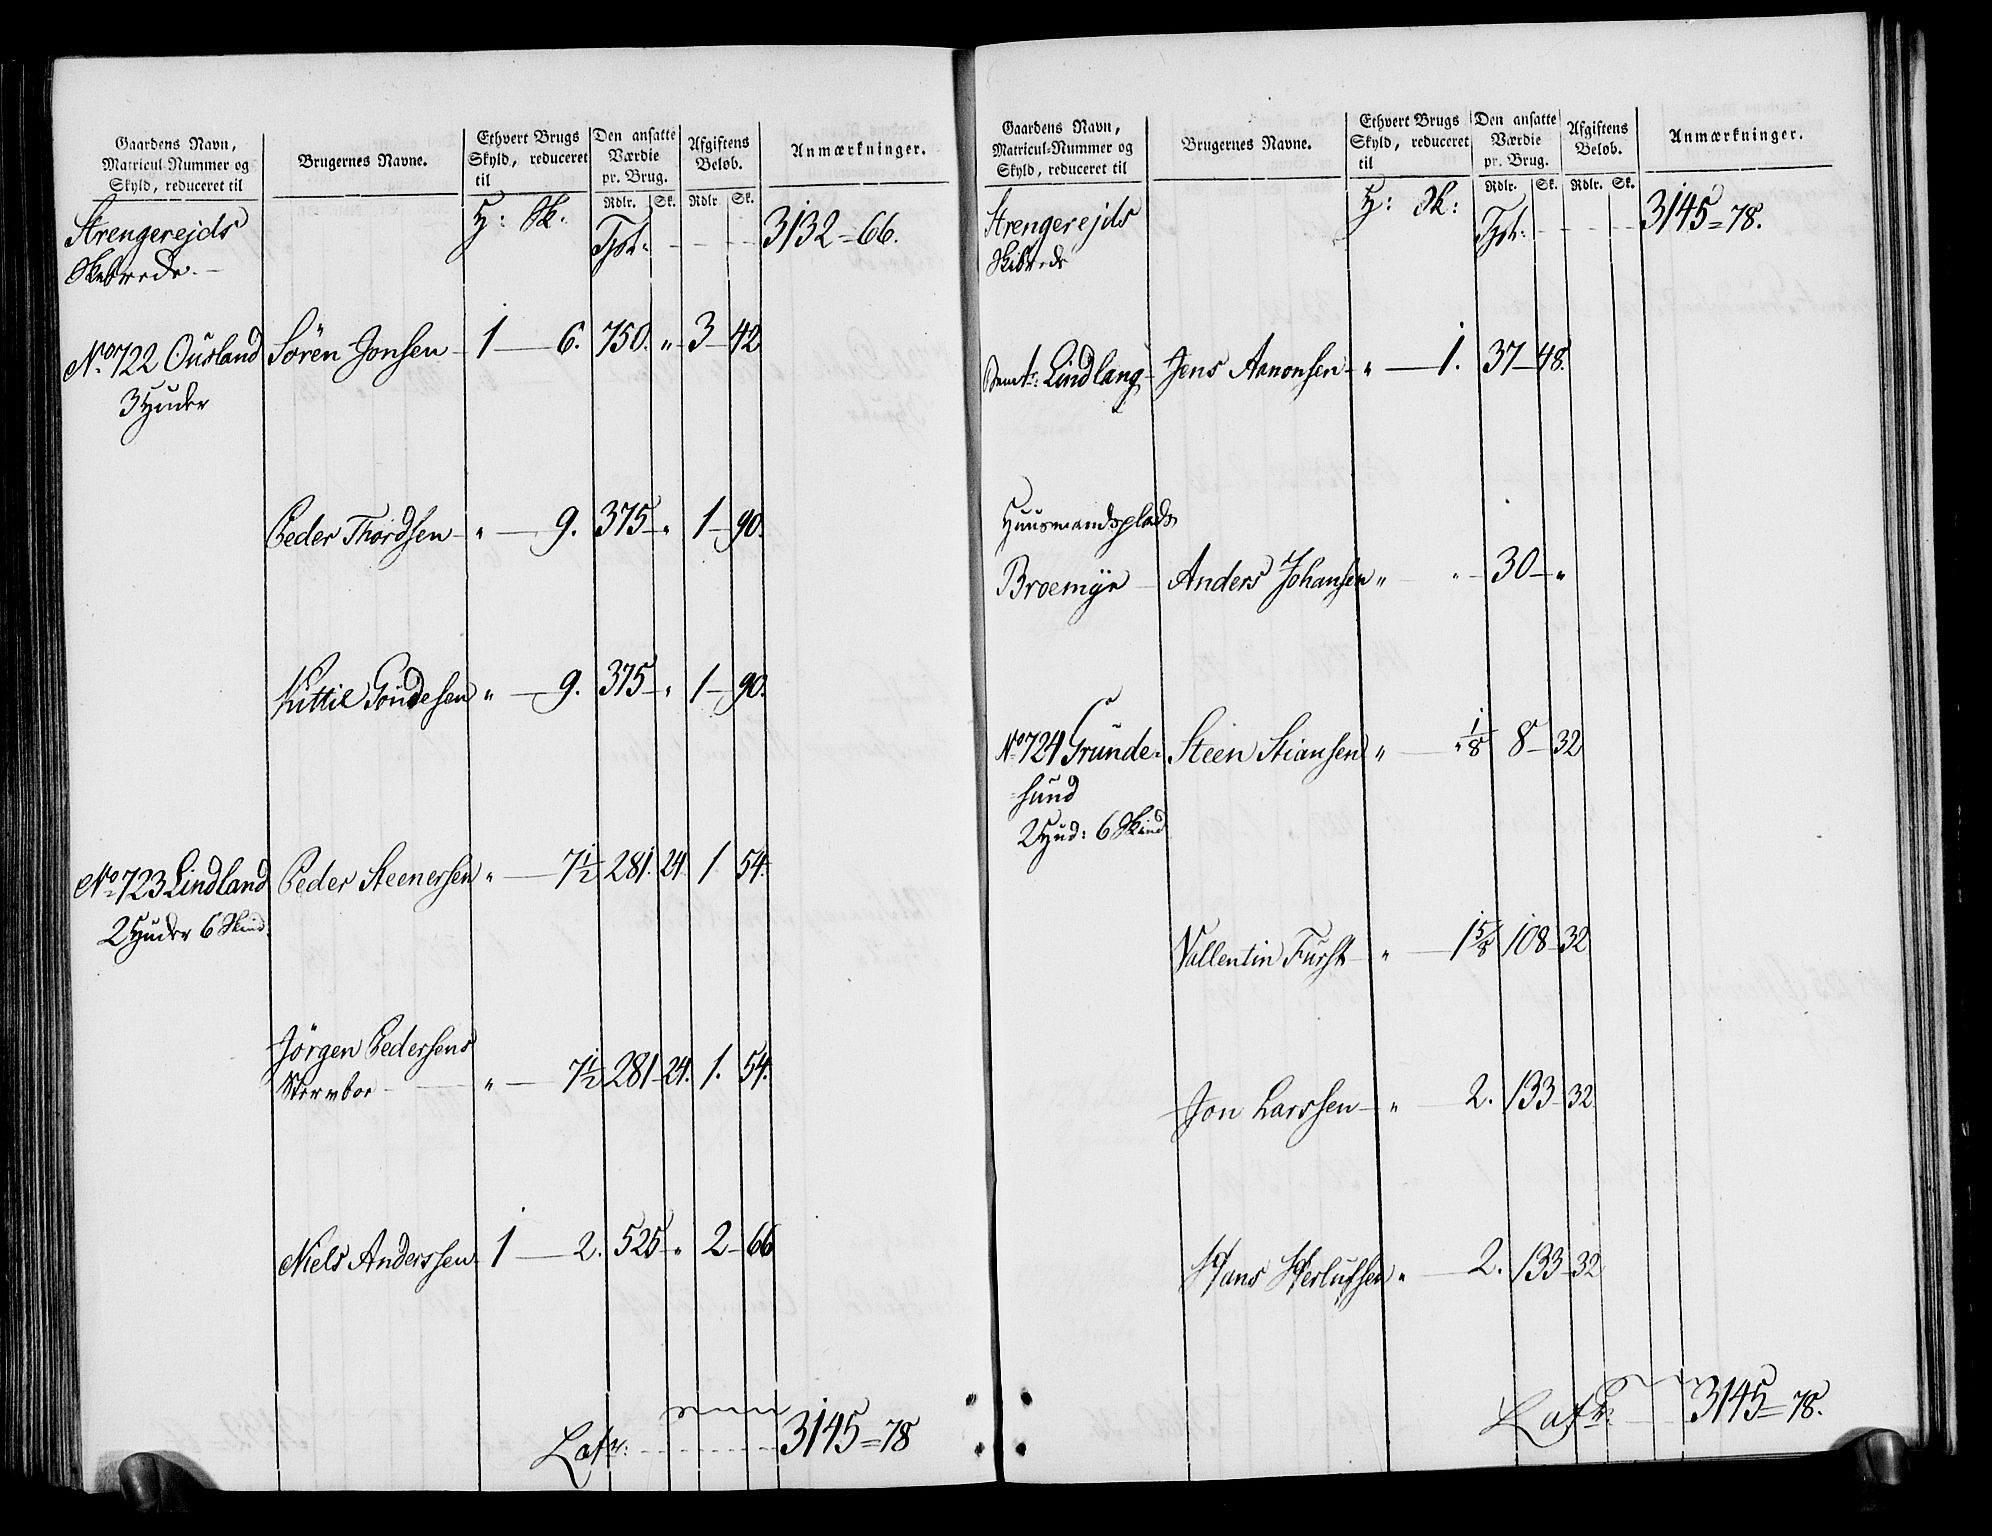 Gaardens Navn,
Matricul-Nummer og
Skyld, reduceret til
Brugernes Navne.
Ethvert Brugs
Skyld, reduceret
til
Den ansatte
Værdie
pr. Brug.
Afgiftens
Beløb.
Anmærkninger.
Rdlr. Sk. Rdlr Sk.
Strengerejds
Skibrede.
H: Sk.
Tpt: 3132=66.
No 722 Ousland Søren Jonsen 1 — 6. 750. „ 3 — 42
3 Huder
Peder Thordsen „ — 9. 375 — „ 1 — 90.
Kittil Goudesen „ — 9. 375 — „ 1 — 90.
No 723 Lindland Peder Steenersen „ — 7½ 281. 24. 1 54.
2 Huder 6 Skind.
Jørgen Pedersens
„ — 7½ 281 — 24. 1. 54.
Niels Anderssen 1 — 2. 525 — „ 2 — 66
Latr: 3145=78
Gaardens Navn,
Matricul-Nummer og
Skyld, reduceret til
Brugernes Navne.
Ethvert Brugs
Skyld, reduceret
til
Den ansatte
Værdie
pr. Brug.
Afgiftens
Beløb.
Anmærkninger.
Rdlr. Sk. Rdlr. Sk.
Strengerejds
Skibrede
H: Sk:
Tpt: 3145=78.
Lindland Jens Aanonsen „ — 1. 37 — 48.
Huusmandsplads
Broemyr Anders Johansen „ „ 30 — „
No 724 Grunde=
sund
Steen Stiansen „ — „ 1/8 8 — 32
2 Hud: 6 Skind
Vallentin Furst „ — 1 5/8 108 — 32
Jon Larssen „ — 2. 133 — 32
Hans Herlufsen „ — 2. 133 — 32
Latr: 3145=78.